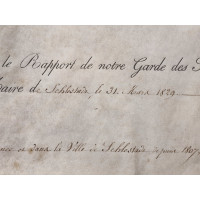 le Rapport de notre Garde des S
aire de Schlestadt, le 31. Mars 1829
dans la Ville de Schlestadt, depuis 1807